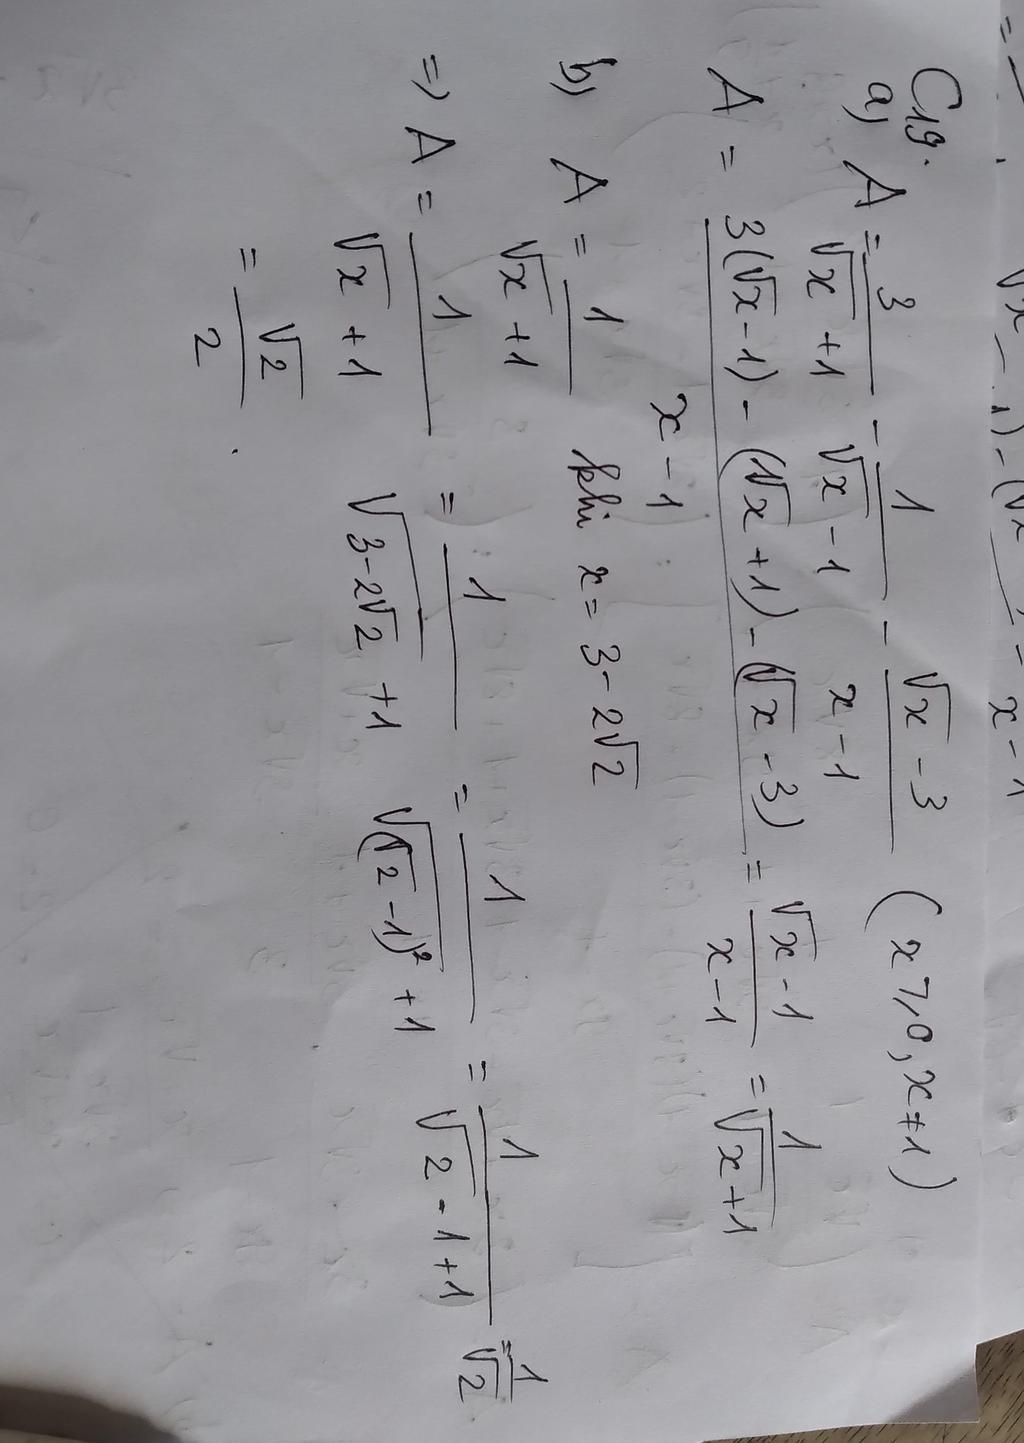 = √x - 1) - (√x = x - 1
C19.
a) A = 3/(√x + 1) - 1/(√x - 1) - (√x - 3)/(x - 1) (x ⩾ 0, x ≠ 1)
A = (3(√x - 1) - (√x + 1) - (√x - 3))/(x - 1) = (√x - 1)/(x - 1) = 1/(√x + 1)
b) A = 1/(√x + 1) khi x = 3 - 2√2
=> A = 1/(√x + 1) = 1/(√(3 - 2√2) + 1) = 1/(√((√2 - 1)²) + 1) = 1/(√2 - 1 + 1) = 1/√2
= √2/2.